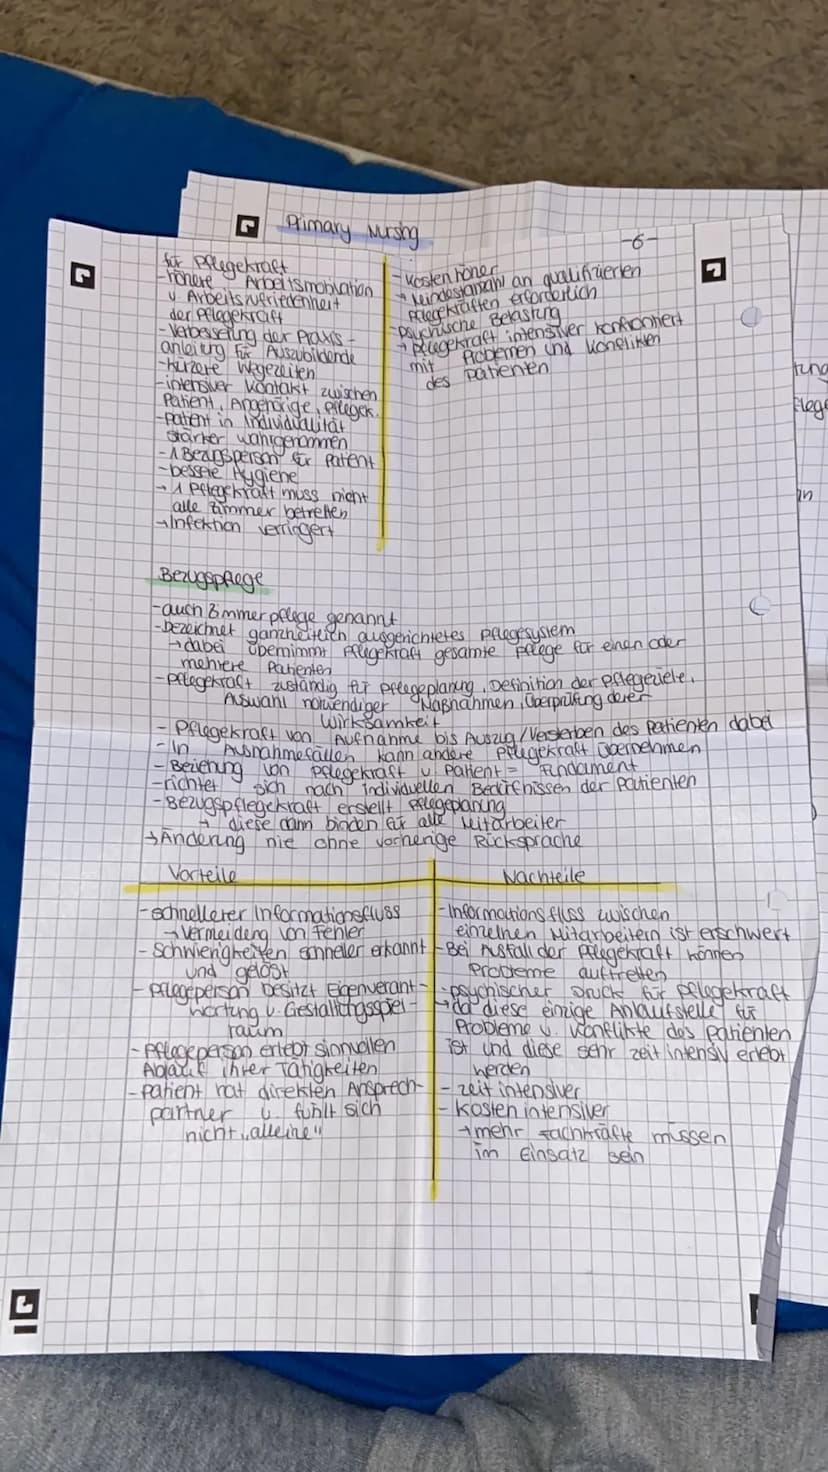 Primary Nursing
-6-
für Pflegekraft
-höhere Arbeitsmotivation
u Arbeitszufriedenheit
der Pflegekraft
-Verbesserung der Praxis-
anleitung für Auszubildende
-kürzere Wegezeiten
-intensiver Kontakt zwischen
Patient, Angehörige, Pflegek.
-Patient in Individualität
stärker wahrgenommen
-1 Bezugsperson für Patient
-bessere Hygiene
→ 1 Pflegekraft muss nicht
alle Zimmer betreten
→Infektion verringert
-Kosten höher
→ Mindestanzahl an qualifizierten
Pflegekräften erforderlich
-psychische Belastung
→ Pflegekraft intensiver konfrontiert
mit Problemen und Konflikten
des Patienten
Bezugspflege
-auch Zimmerpflege genannt
-bezeichnet ganzheitlich ausgerichtetes Pflegesystem
→dabei übernimmt Pflegekraft gesamte Pflege für einen oder
mehrere Patienten
-Pflegekraft zuständig für Pflegeplanung, Definition der Pflegeziele,
Auswahl notwendiger Maßnahmen, Überprüfung derer
Wirksamkeit
- Pflegekraft von Aufnahme bis Auszug/Versterben des Patienten dabei
- In Ausnahmefällen kann andere Pflegekraft übernehmen
- Beziehung von Pflegekraft u Patient = Fundament
-richtet sich nach individuellen Bedürfnissen der Patienten
-Bezugspflegekraft erstellt Pflegeplanung
→ diese dann binden für alle Mitarbeiter
→Änderung nie ohne vorherige Rücksprache
Vorteile
-schnellerer Informationsfluss
→Vermeidung von Fehler
- Schwierigkeiten schneller erkannt
und gelöst
- Pflegeperson besitzt Eigenverant-
wortung u. Gestaltungsspiel-
raum
-Pflegeperson erlebt sinnvollen
Ablauf ihrer Tätigkeiten
-Patient hat direkten Ansprech-
partner u fühlt sich
nicht „alleine"
Nachteile
-Informationsfluss zwischen
einzelnen Mitarbeitern ist erschwert
-Bei Ausfall der Pflegekraft können
Probleme auftreten
-psychischer Druck für Pflegekraft
→da diese einzige Anlaufstelle für
Probleme u. Konflikte des Patienten
ist und diese sehr zeit intensiv erlebt
werden
- zeit intensiver
- kosten intensiver
→mehr Fachkräfte müssen
im Einsatz sein